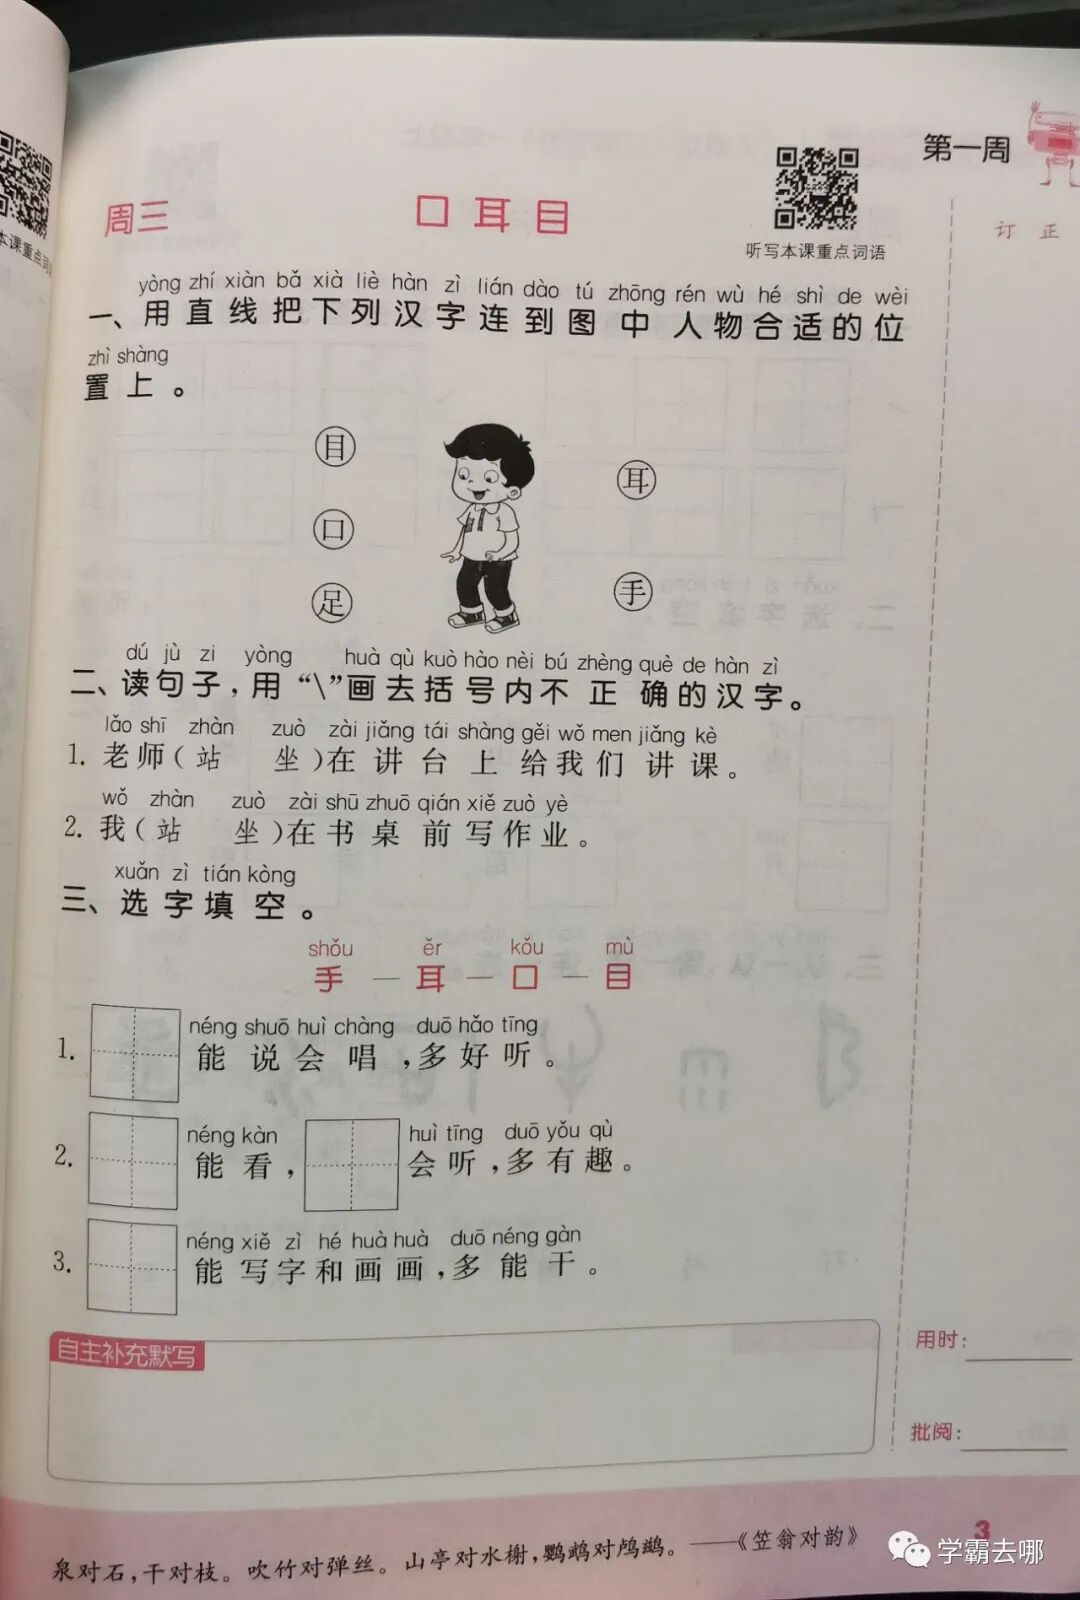 第一周
本课重点词
周三
口耳目
听写本课重点词语
订正
yòng zhí xiàn bǎ xià liè hàn zì lián dào tú zhōng rén wù hé shì de wèi
一、用直线把下列汉字连到图中人物合适的位
zhì shàng
置上。
目
耳
口
足
手
dú jù zi yòng huà qù kuò hào nèi bú zhèng què de hàn zì
二、读句子,用“\”画去括号内不正确的汉字。
lǎo shī zhàn zuò zài jiǎng tái shàng gěi wǒ men jiǎng kè
1. 老师(站 坐)在讲台上给我们讲课。
wǒ zhàn zuò zài shū zhuō qián xiě zuò yè
2. 我(站 坐)在书桌前写作业。
xuǎn zì tián kòng
三、选字填空。
shǒu ěr kǒu mù
手—耳—口—目
néng shuō huì chàng duō hǎo tīng
1. 能说会唱,多好听。
néng kàn huì tīng duō yǒu qù
2. 能看, 会听,多有趣。
néng xiě zì hé huà huà duō néng gàn
3. 能写字和画画,多能干。
自主补充默写
用时:
批阅:
3
泉对石,干对枝。吹竹对弹丝。山亭对水榭,鹦鹉对鸬鹚。——《笠翁对韵》
学霸去哪